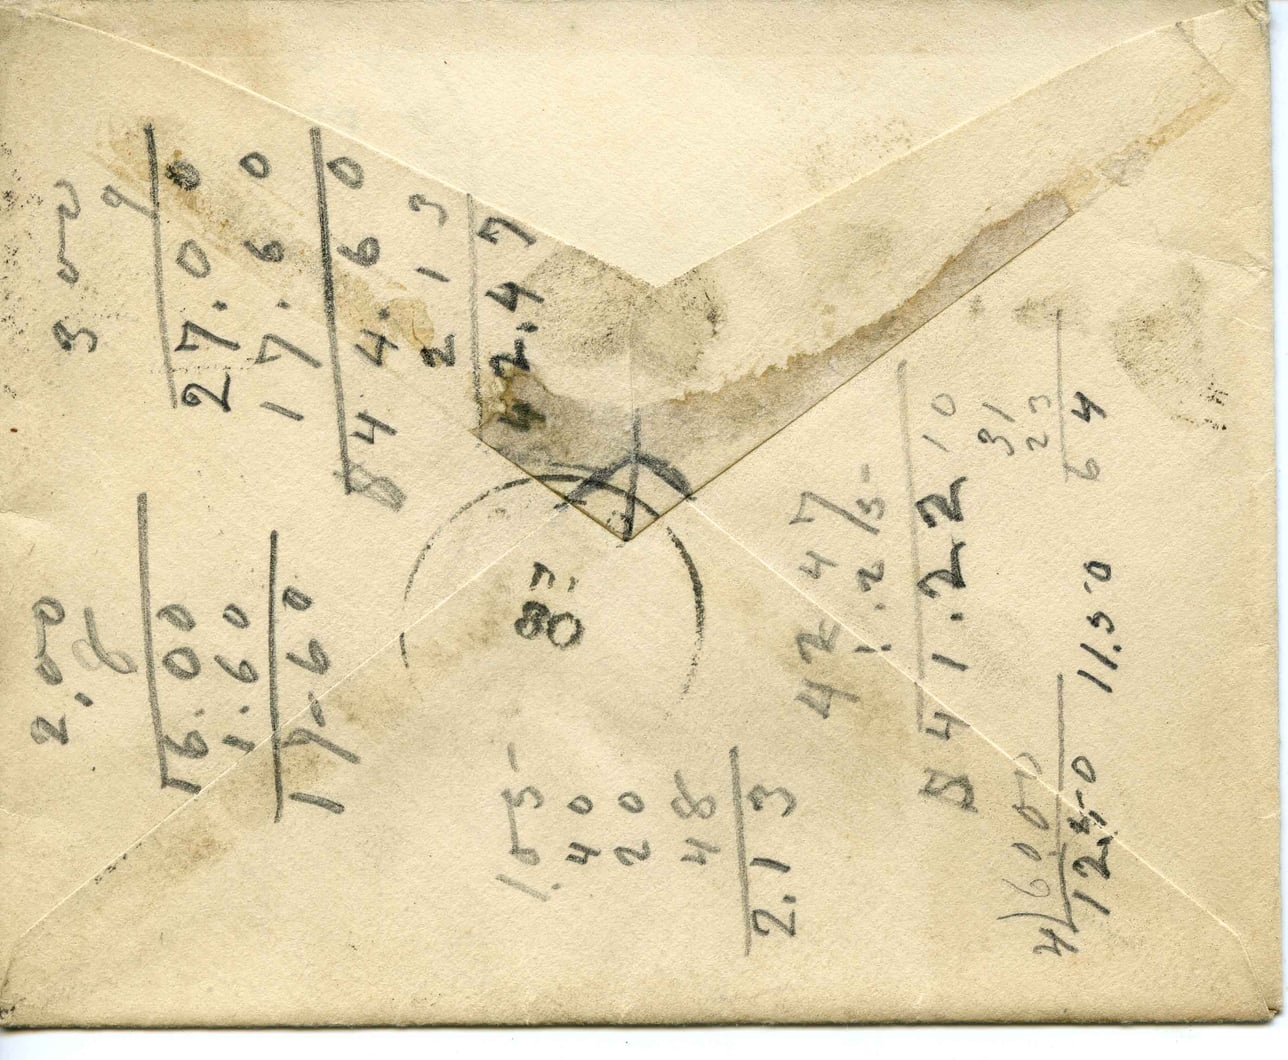 2.00
8
16.00
1.60
17.60
3.00
9
27.00
17.60
$44.60
2 13
42.47
1.05
40
20
48
2.13
42 47
1.25
$41.22
10
31
23
64
11.50